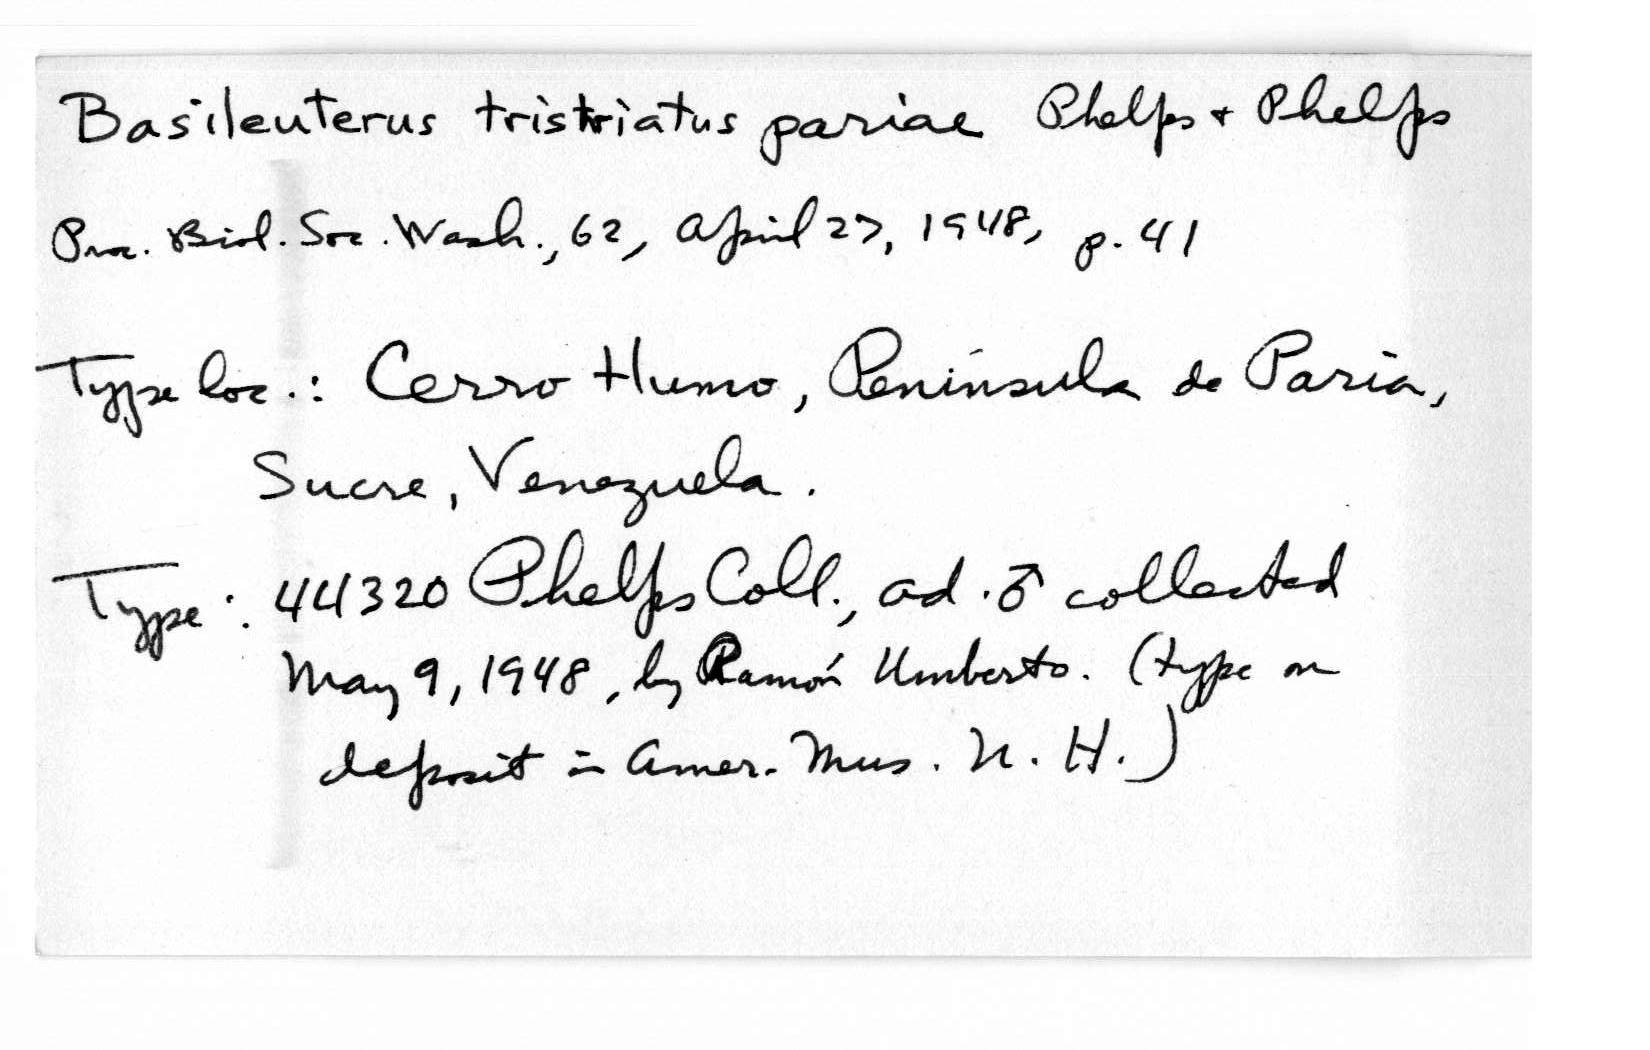 Basileuterus tristriatus pariae Phelps + Phelps
Proc. Biol. Soc. Wash., 62, April 27, 1948, p. 41
Type loc.: Cerro Humo, Península de Paria,
Sucre, Venezuela.
Type: 44320 Phelps Coll., ad. ♂ collected
May 9, 1948, by Ramón Umberto. (type on
deposit in Amer. Mus. N. H.)